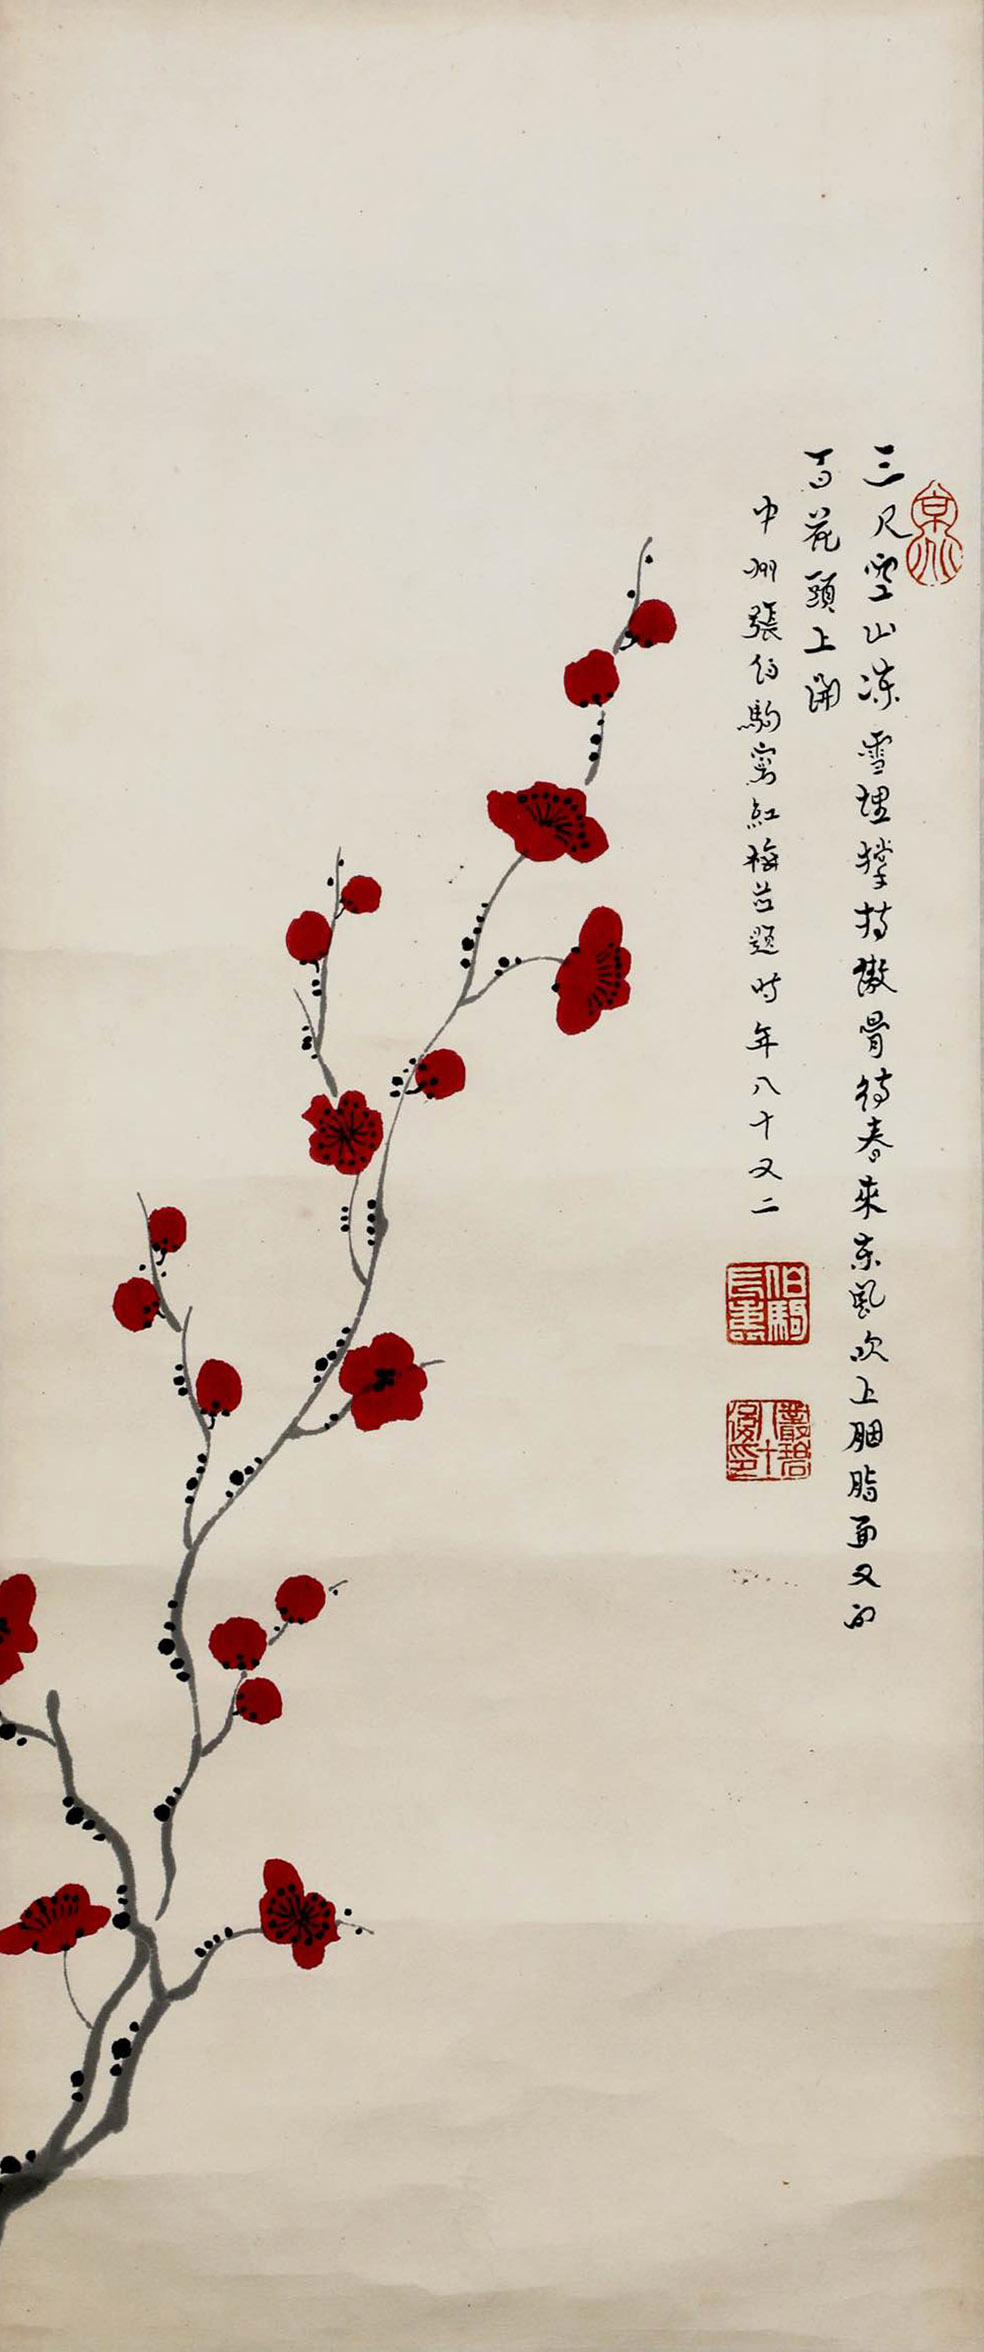 三尺空山凍雪埋撑持傲骨待春來东風吹上胭脂面又向
百花頭上開
中州張伯駒寫紅梅並題时年八十又二
京兆
伯駒長壽
叢碧八十後印